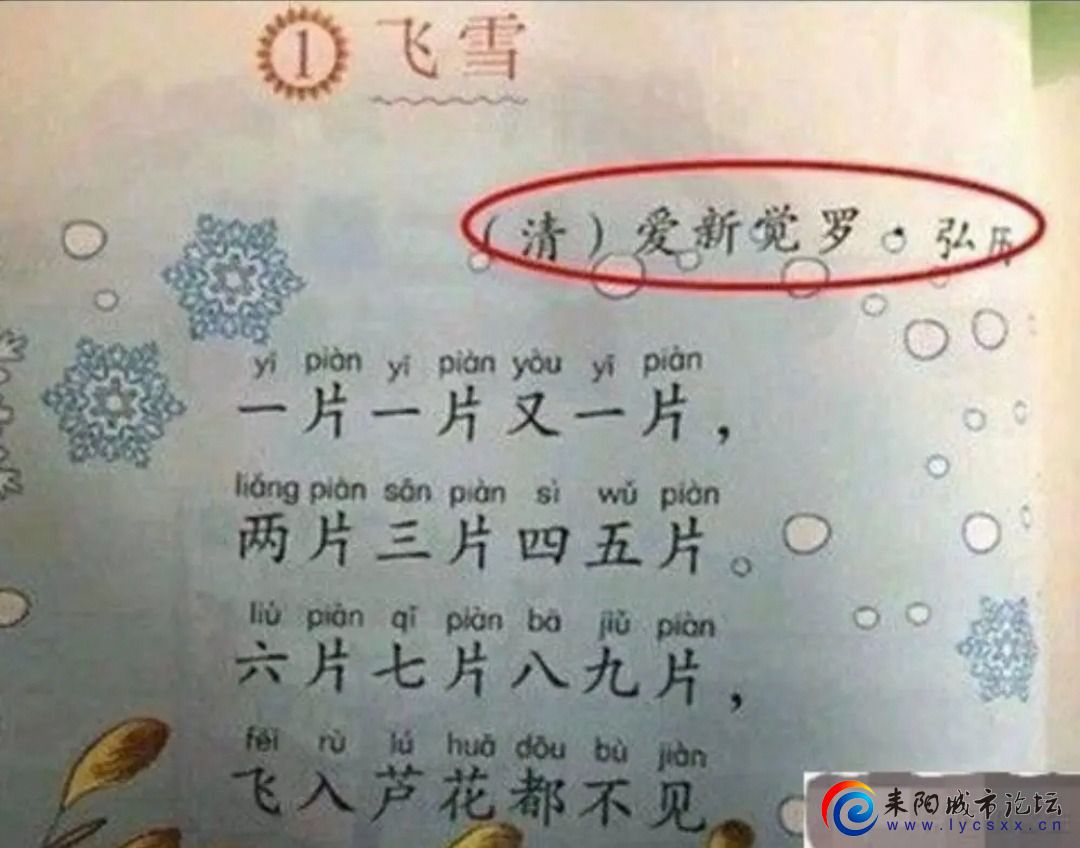 1 飞雪
（清）爱新觉罗·弘历
yí piàn yí piàn yòu yí piàn
一片一片又一片，
liǎng piàn sān piàn sì wǔ piàn
两片三片四五片。
liù piàn qī piàn bā jiǔ piàn
六片七片八九片，
fēi rù lú huā dōu bú jiàn
飞入芦花都不见
耒阳城市论坛
www.lycsxx.cn